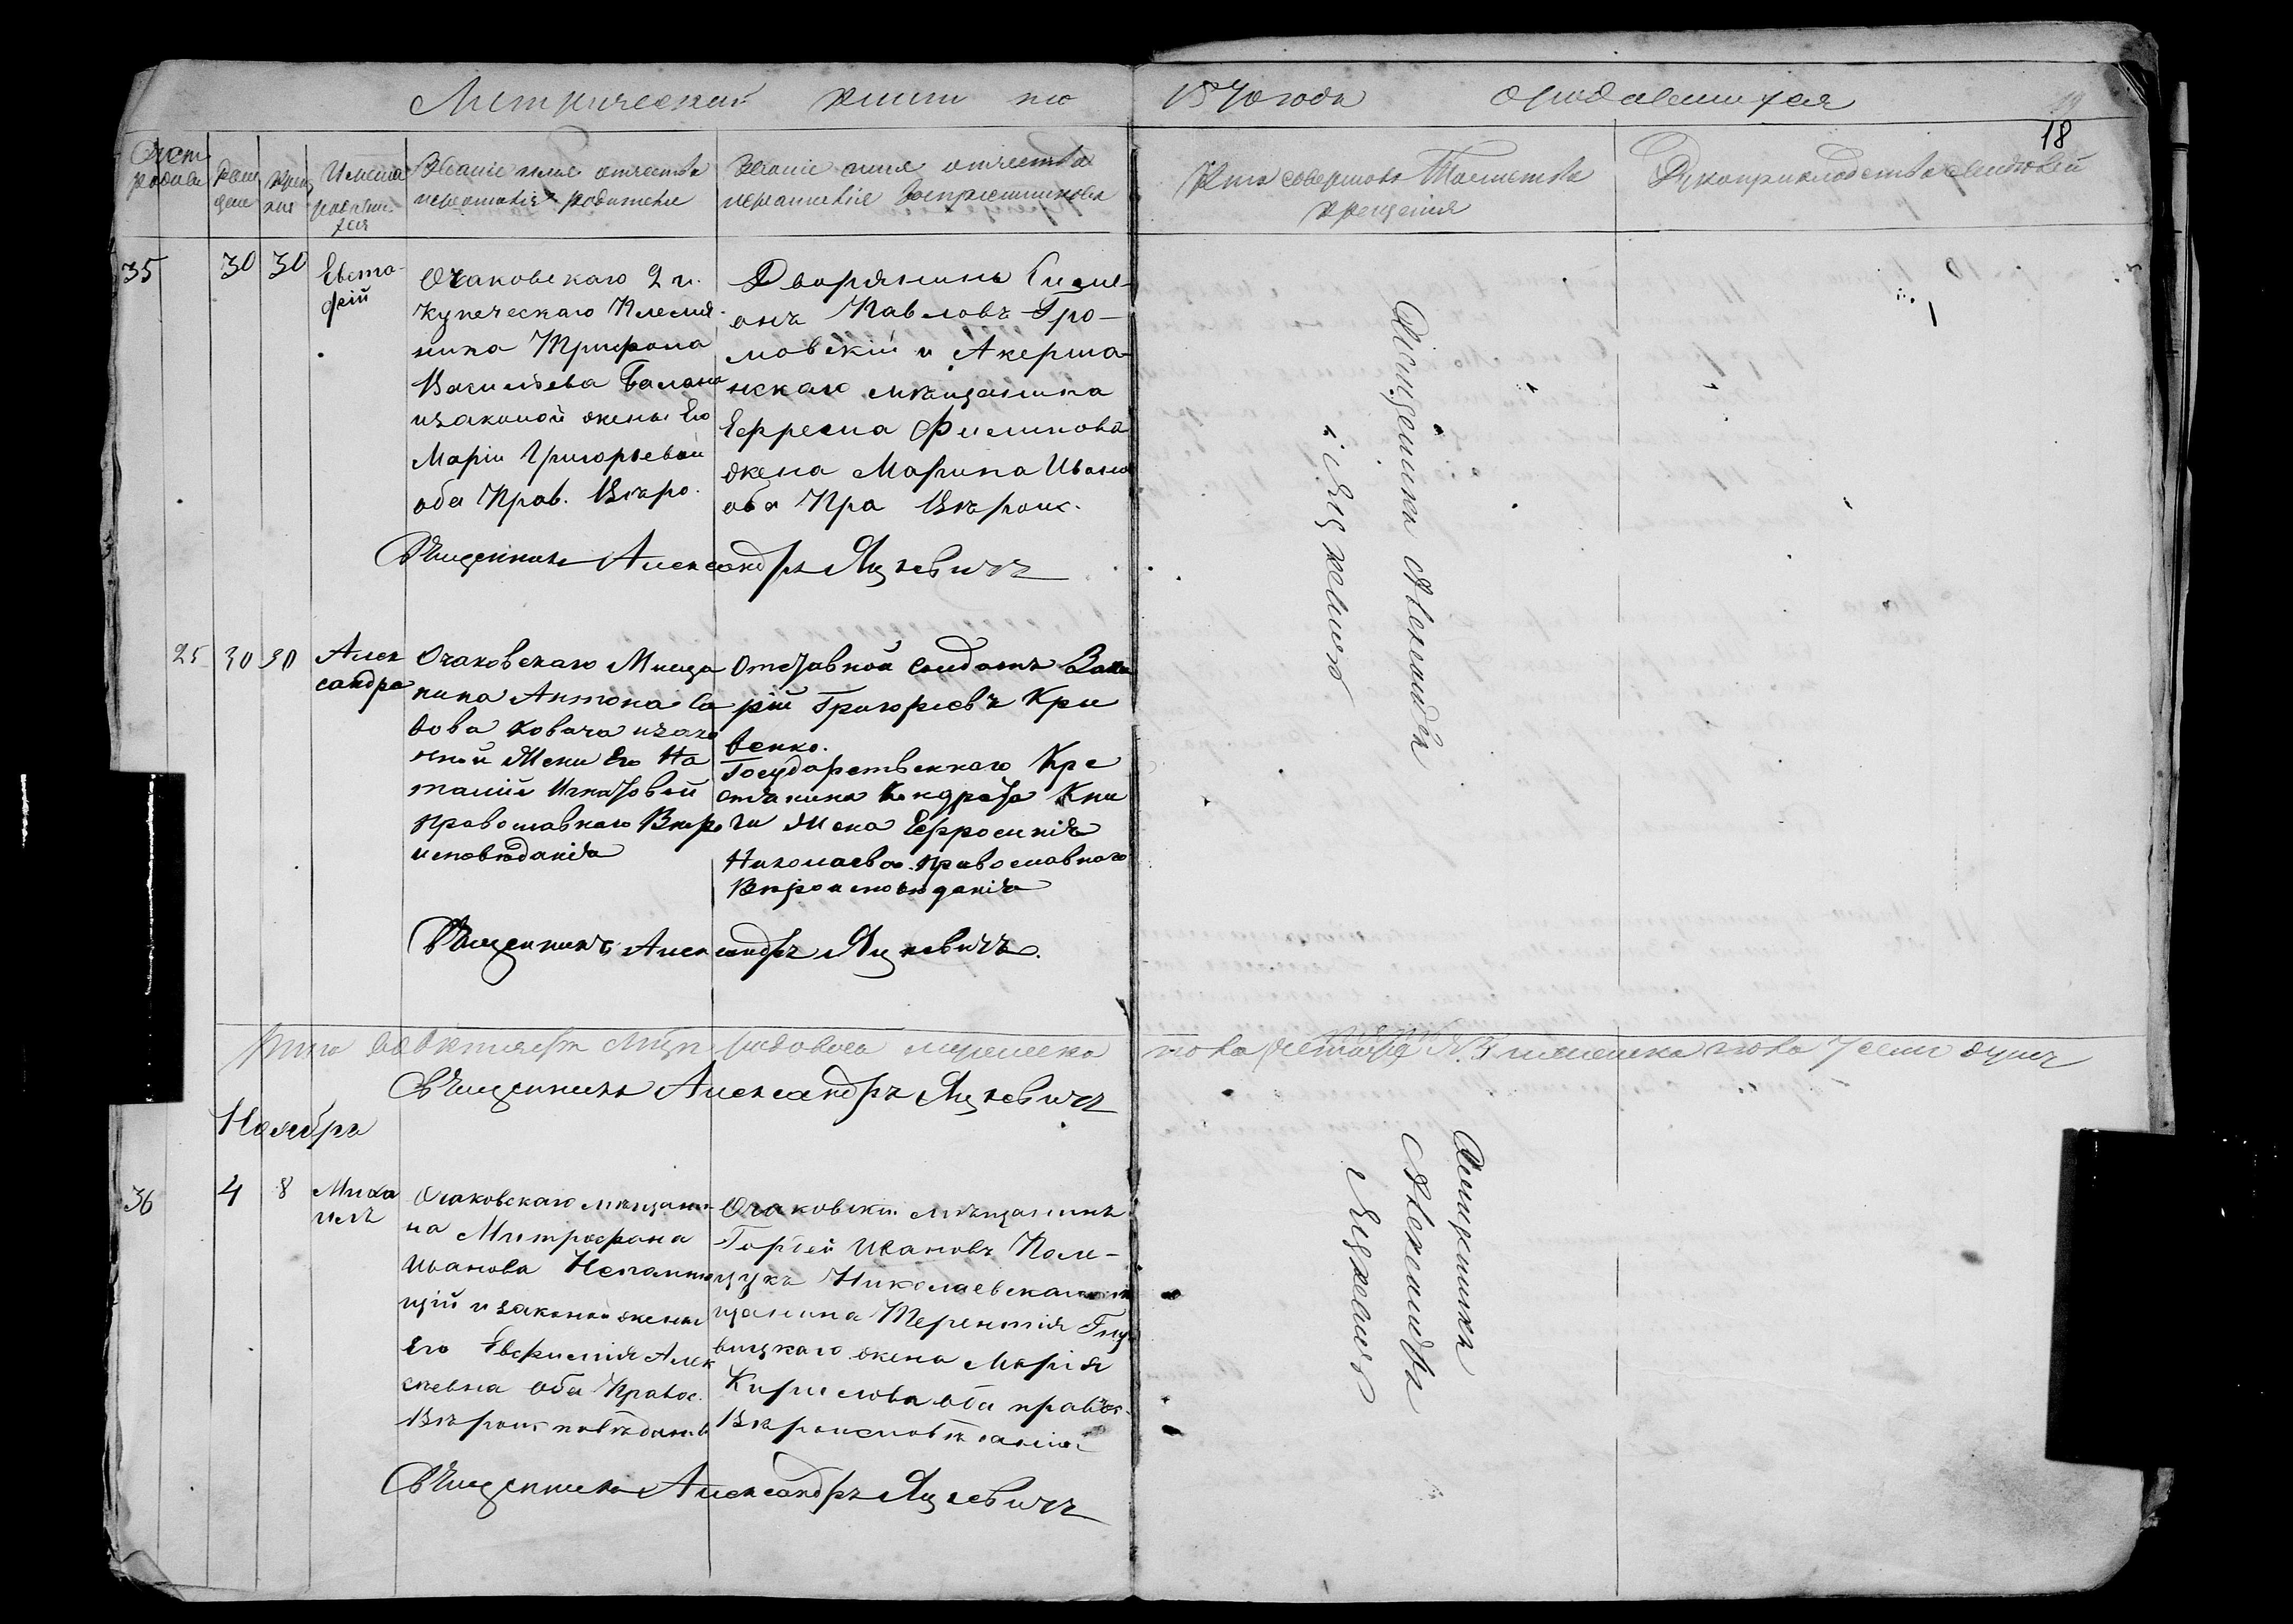 Метрический лист на 1870 года о родившихся
18
Счет родивш
Рож дение
Крещ ния
Имена родивших ся
Званіе имя отчество
и фамилія родители
Званіе имя отчество
и фамиліе воспріемниковъ
Кто совершалъ Таинство
крещенія
Рукоприкладство свидетелей
35
30 30
Евста-
фій
Очаковскаго 2 г.
купеческаго Племя-
ника Трифона
Васильева Балана
и законой жены Его
Маріи Григорьевой
оба Прав. Вѣро.
Дворянинъ Симе-
онъ Павловъ Гро-
мовскій и Акерма-
нскаго мѣщанина
Ефрема Филипова
жена Марина Ивано
оба Пра Вѣроис.
Священникъ Александръ Яцкевичъ
Священникъ Александръ
Яцкевичъ
25 30 30
Алек
сандра
Очаковскаго Мищa
нина Антона Са
вова Ковача и зако
нной Жени Его На
талiи Игнатовой
православнаго Вѣро
исповѣданія
Отставной солдатъ Заха
рій Григоріевъ Кри
венко.
Государственнаго Кре
стянина Кондрата Кни
ги Жена Ефросинія
Николаева православнаго
Вѣроисповѣданія
Священникъ Александръ Яцкевичъ.
Итого въ Октябрѣ Мцѣ родилось мужеска пола четыре Женска пола 7 семи душъ
Священникъ Александръ Яцкевичъ
Ноябрь
36
4 8
Миха
илъ
Очаковскаго мѣщани
на Митрофана
Иванова
и законой жены
Его Евфимія Алек
сеевна оба Правос.
Вѣроисповѣданія
Очаковскій мѣщанинъ
Гордей Ивановъ Поли-
щукъ Николаевскаго мѣ
щанина Терентія
жена Марія
Кирилова оба правос.
Вѣроисповѣданія
Священникъ Александръ Яцкевичъ
Священникъ
Александръ
Яцкевичъ